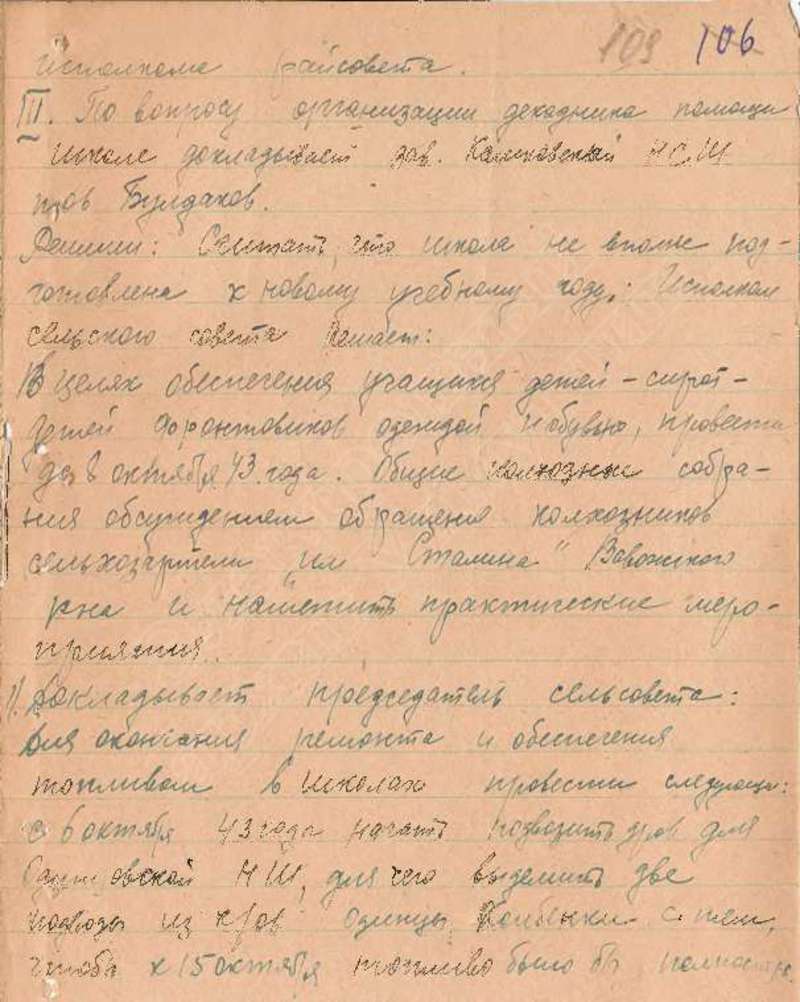 109 106
исполкома райсовета.
III. По вопросу организации декадника помощи
школе докладывает зав. НСШ
тов Булдаков.
Решили: Считать, что школа не вполне под-
готовлена к новому учебному году,: Исполком
сельского совета Решает:
В целях обеспечения учащихся детей-сирот-
детей фронтовиков одеждой и обувью, провести
до 8 октября 43 года. Общие колхозные собра-
ния обсуждением обращения колхозников
сельхозартели "им Сталина" Вавожского
р-на и наметить практические меро-
приятия.
1). Докладывает председатель сельсовета:
Для окончания ремонта и обеспечения
топливом в школах провести следующи:
с 6 октября 43 года начать подвозить дров для
НШ, для чего выделить две
подводы из к/зов Одинцы, с тем,
чтоб к 15 октября топливо было бы